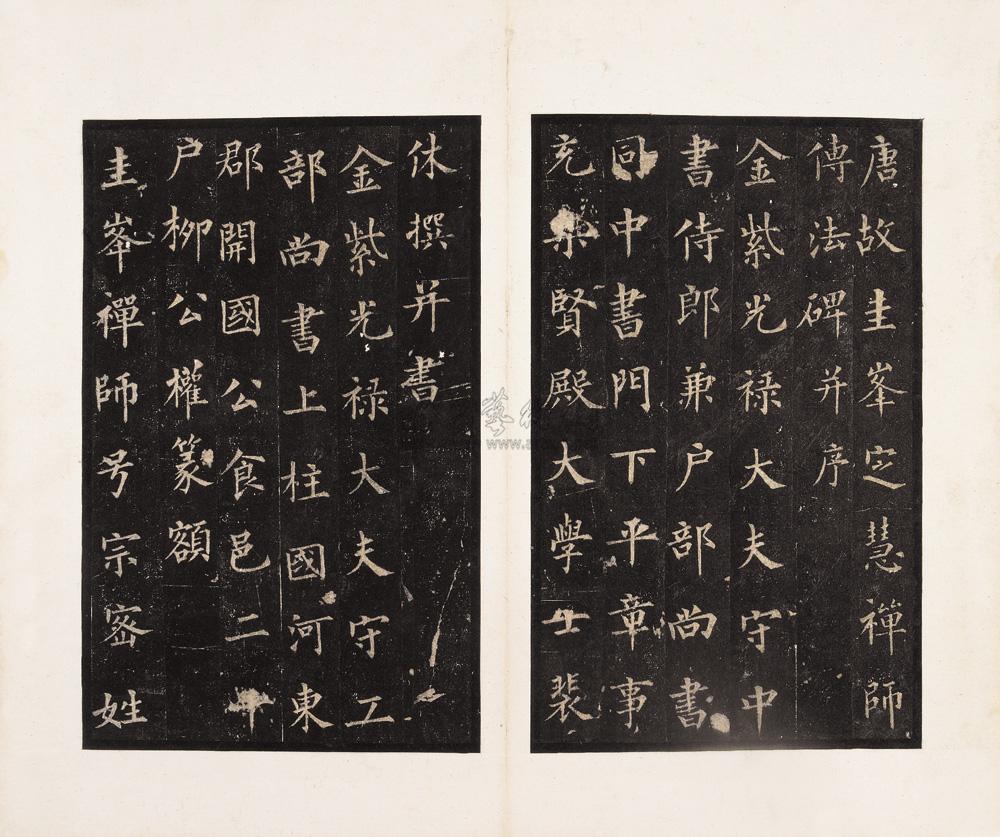 唐故圭峯定慧禪師
傳法碑并序
金紫光禄大夫守中
書侍郎兼户部尚書
同中書門下平章事
充集賢殿大學士裴
休撰并書
金紫光禄大夫守工
部尚書上柱國河東
郡開國公食邑二千
户柳公權篆額
圭峯禪師号宗密姓